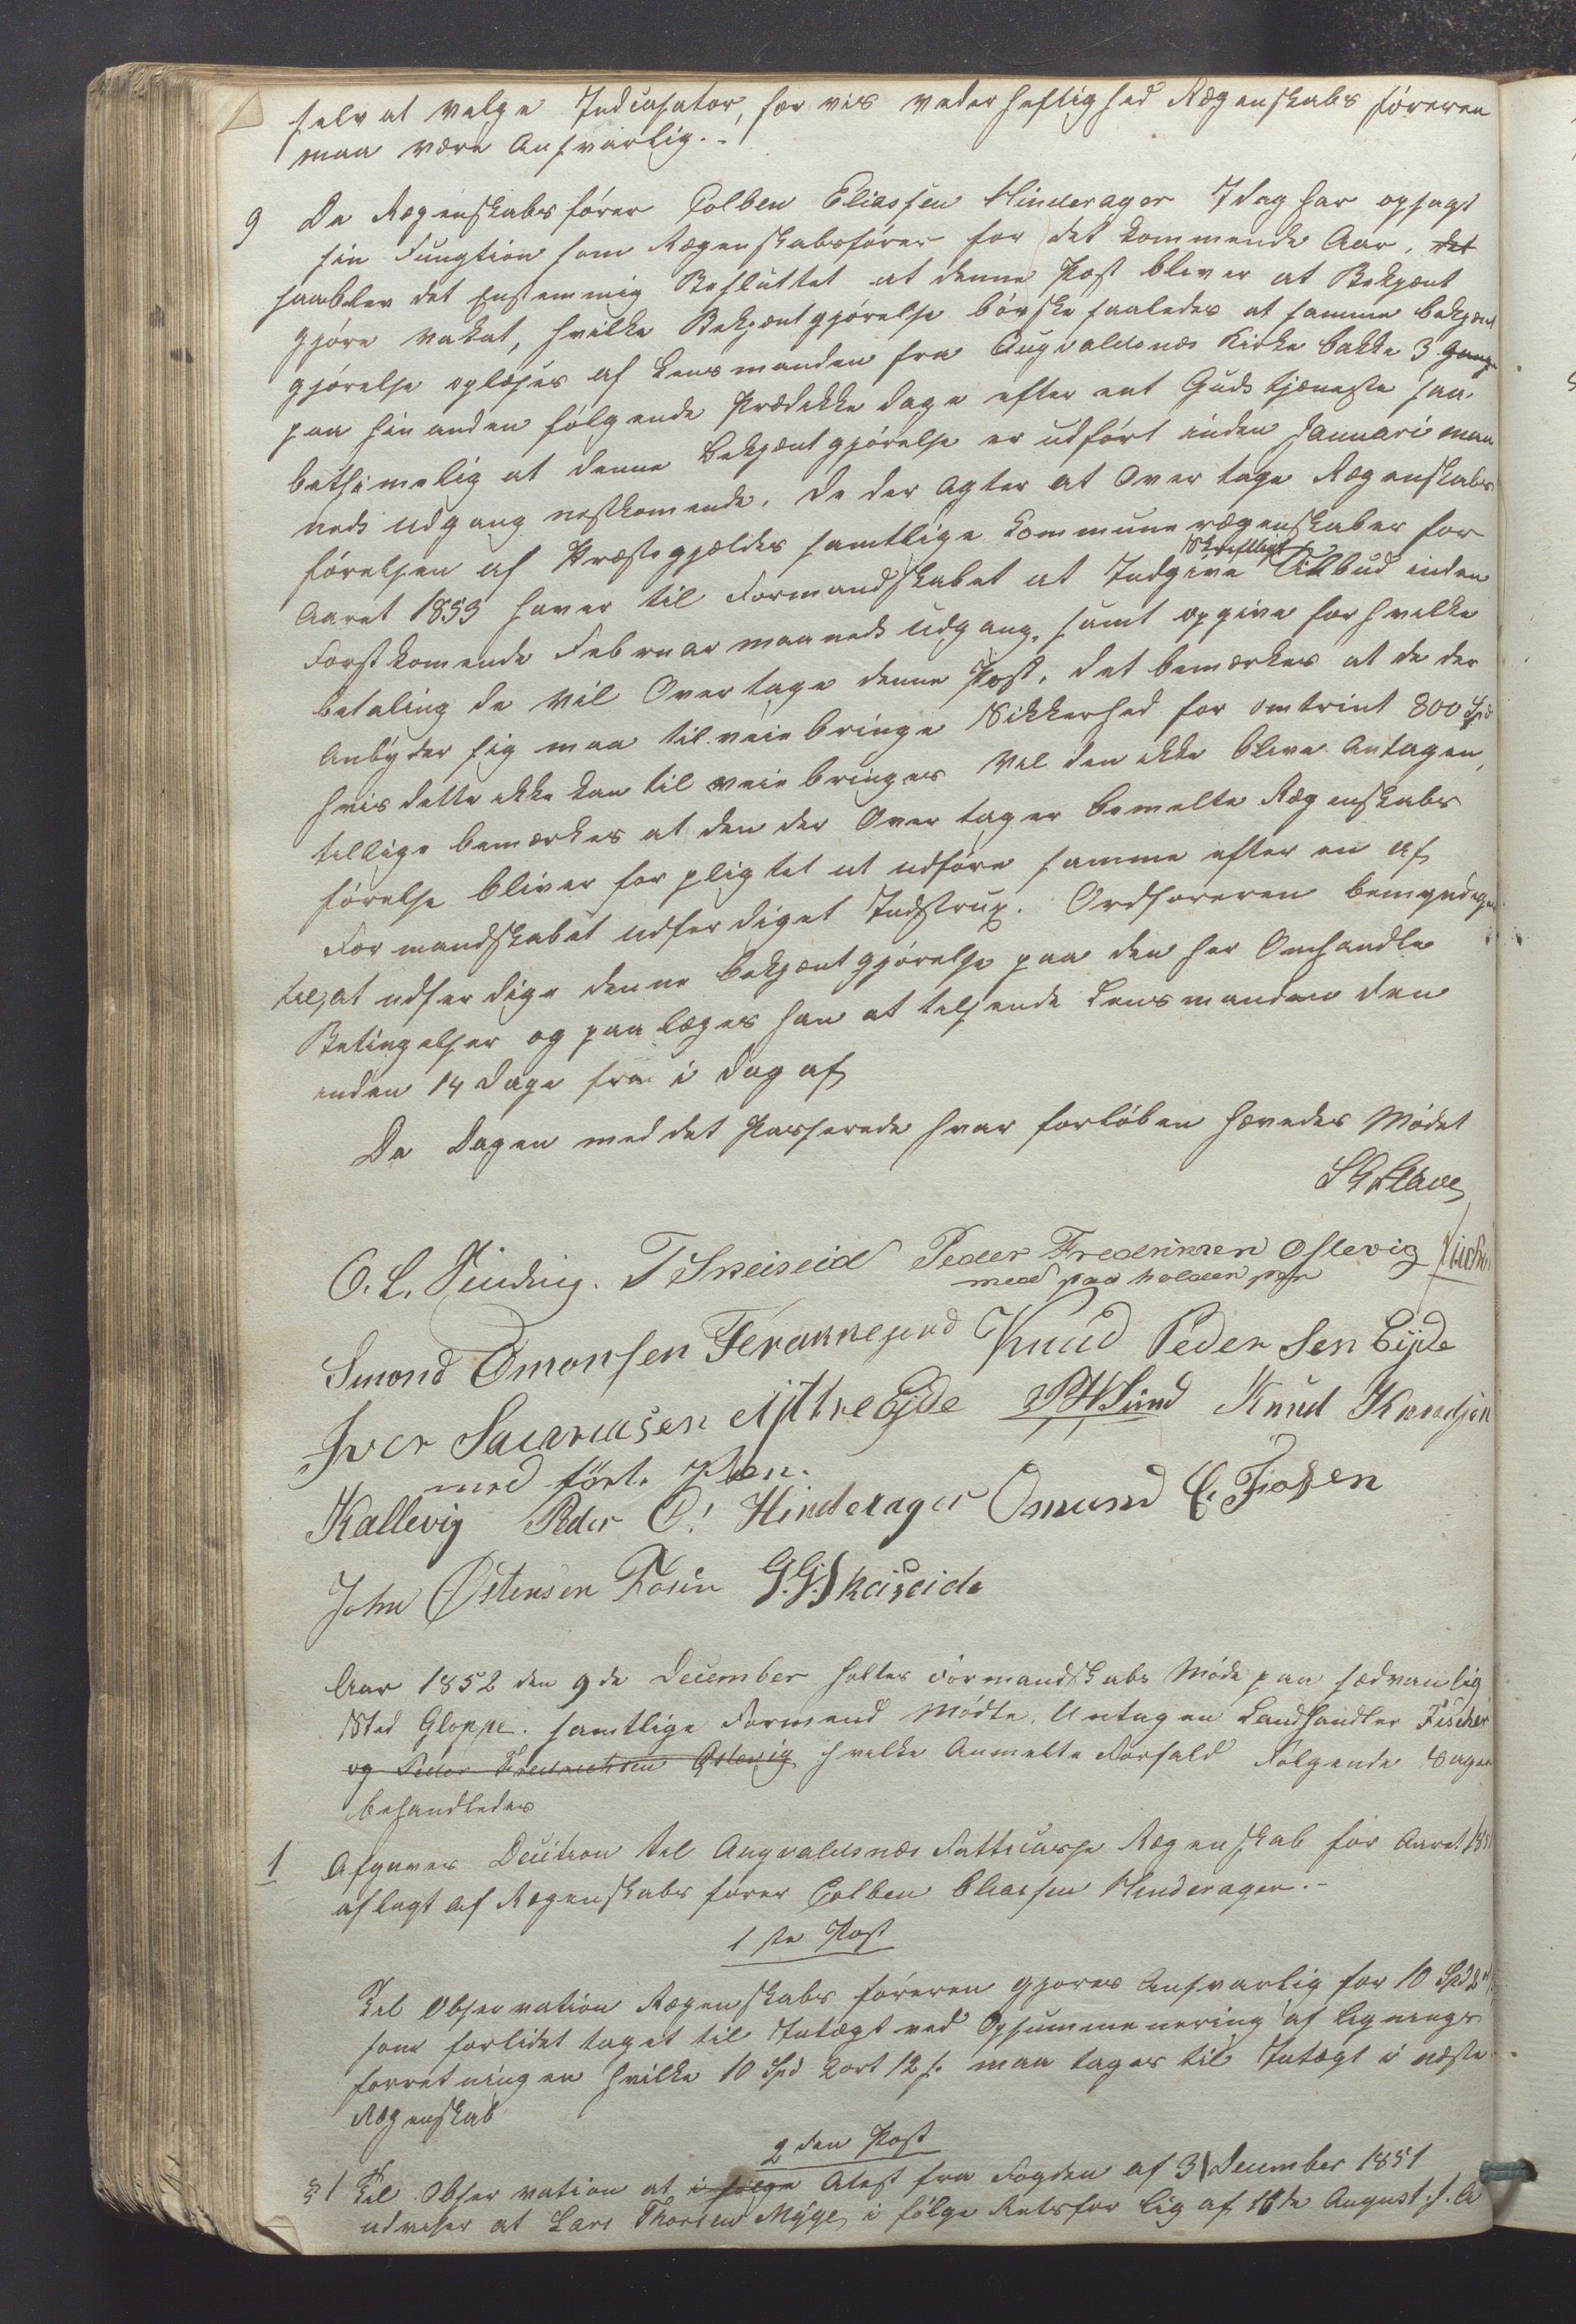 selv at velge Indcasator, for vis vederheftighed Rægenskabs föreren
maa være Ansvarlig.-
9 Da Rægenskabsförer Colben Eliassen Hinderager I dag har opsagt
sin Fungtion som Rægenskabsförer for det kommende Aar, det
saa blev det Enstemmig Besluttet at denne Post bliver at Bekjænt
gjöre vakat, hvilke Bekjæntgjörelse bör ske saaledes at samme bekjænt
gjörelse oplæses af Lensmanden fra Augvaldsnæs Kirke bakke 3 Gange
paa hinanden fölgende Prædikke dage efter ent Guds tjæneste saa
betsimelig at denne bekjæntgjörelse er udfört inden Januari maa
neds udgang nestkomende. De der agter at Overtage Rægenskabs
förelsen af Præstegjældes samtlige Kommune rægenskaber for
Aaret 1853 haver til Formandskabet at Indgive Skriftligt Tilbud inden
Forst komende Februar maaneds udgang, samt opgive for hvilke
betaling de vil Overtage denne Post, det bemærkes at de der
Anbyder sig maa tilveiebringe Sikkerhed for omtrint 800 Spd
hvis dette ikke kan til veie bringes vel den ikke bleve Antagen,
tellige bemærkes at den der Over tager bemelte Rægenskabs
förelse bliver forpligtet at udföre samme efter en af
Formandskabet udferdiget Indstrux. Ordföreren bemyndiges
tel, at udferdige denne bekjæntgjörelse paa den her Omhandle
Betingelser og paalæges han at telsende Lensmanden den
inden 14 Dage fra i dag af
Da Dagen med det Passerede hvar forlöben hævedes Mödet
O. L. Sinding. T Skeiseid Peder Fredriksen Oslevig Fischer
med paa holden pen
Smond Omonsen Ferakkesund Knud Peder Sen Eijde
Iver Sacariasen Ijttre Eijde PWSund Knud Knudsen
med fört. Pen.
Kallevig Peder C! Hinderager Osmund C. Fosen
John Östensen Fosen G. G. Skeiseide
Aar 1852 den 9de December holtes Formandskabs Möde paa sædvanlig
Sted Gloppe. samtlige Formend Mödte. Untagen Landhandler Fischer
og Peder Fredrichsen Oslevig hvelke Anmelte Forfald Fölgende Sager
behandledes
1 Afgaves Decition tel Augvaldsnæs Fatticasse Rægenskab för Aaret 1851
aflagt af Rægenskabs förer Colben Eliassen Hinderager.-
1ste Post
Tel Observation Rægenskabs föreren gjores Ansvarlig for 10 Spd 2
som forlidet taget til Intægt ved Opsummenering af Ligning
forretningen hvilke 10 Spd 2 ort 12 s. maa tages til Intægt i næste
Rægenskab
2den Post
§ 1 Tel Observation at i fölge Atest fra Fogden af 31 December 1851
udviser at Lars Thorsen Myge, i fölge Retsforlig af 16de August s. A